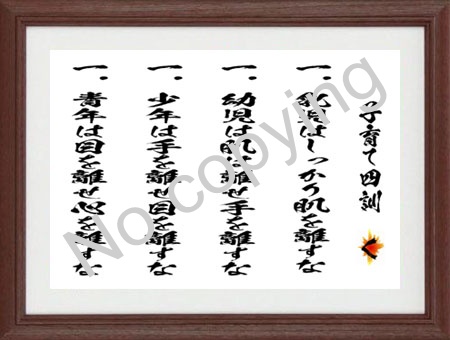 子育て四訓
一. 乳児はしっかり肌を離すな
一. 幼児は肌を離せ手を離すな
一. 少年は手を離せ目を離すな
一. 青年は目を離せ心を離すな
No copying